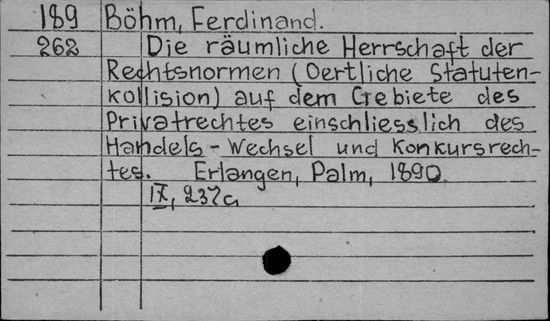 189 Böhm, Ferdinand.
262 Die räumliche Herrschaft der
Rechtsnormen (Oertliche Statuten-
kollision) auf dem Gebiete des
Privatrechtes einschliesslich des
Handels-Wechsel und Konkursrech-
tes. Erlangen, Palm, 1890.
IX, 237a